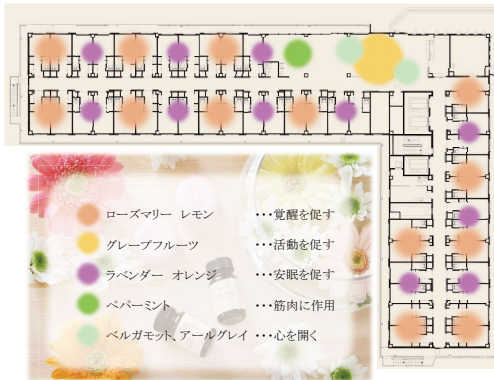 ローズマリー レモン ・・・覚醒を促す
グレープフルーツ ・・・活動を促す
ラベンダー オレンジ ・・・安眠を促す
ペパーミント ・・・筋肉に作用
ベルガモット、アールグレイ ・・・心を開く